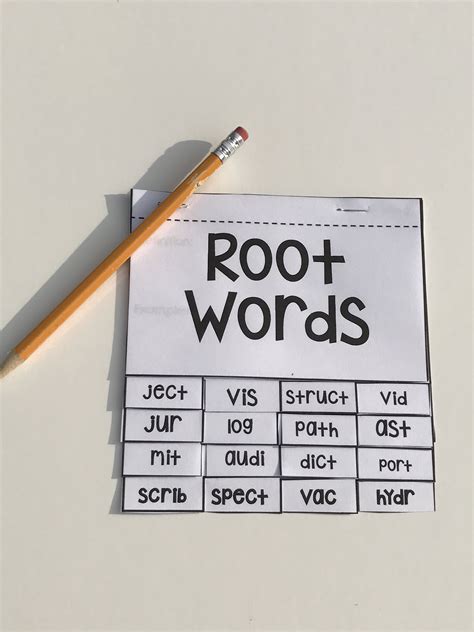 Root
Words
ject vis struct vid
jur log path ast
mit audi dict port
scrib spect vac hydr